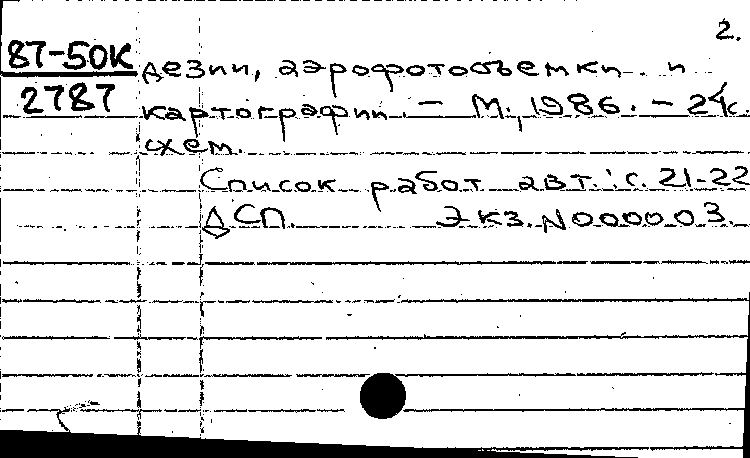 2.
87-50К дезии, аэрофотосъемки и
2787 картографии. - М., 1986. - 24 с.
схем.
Список работ авт.: с. 21-22
ДСП. Экз. N000003.